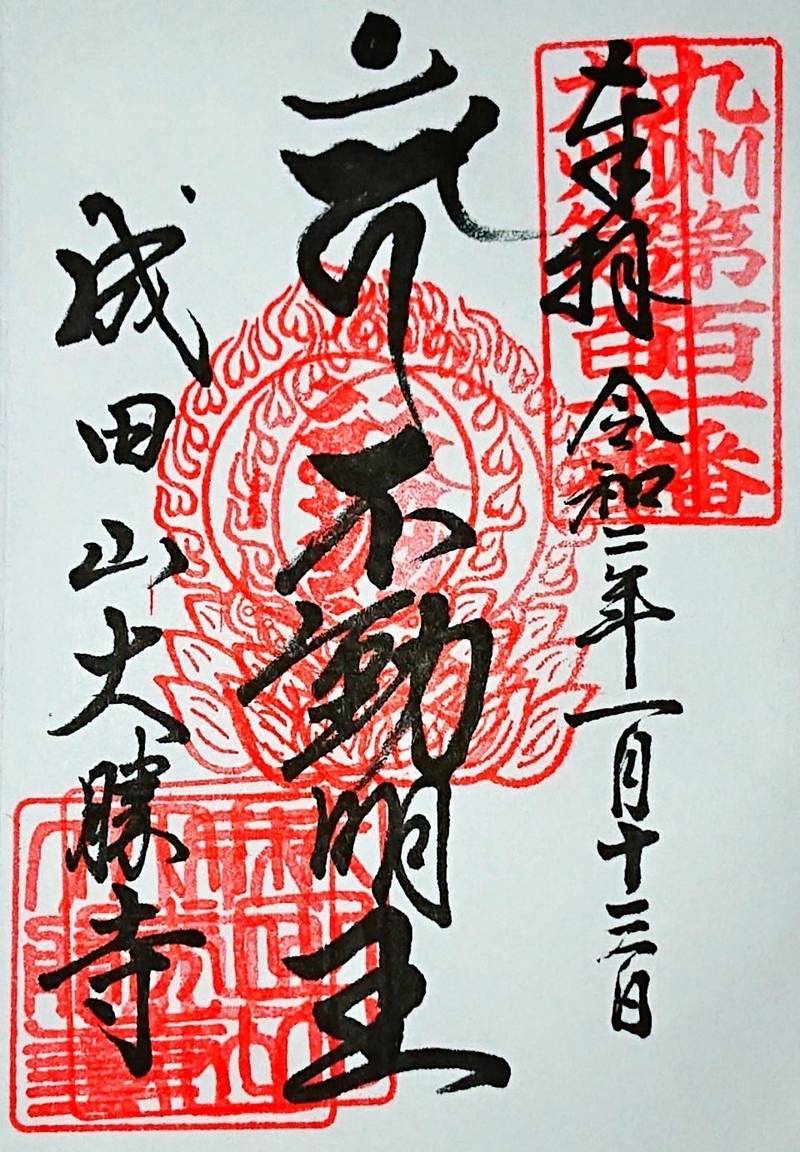 九州第百一番
奉拝 令和二年一月十三日
不動明王
成田山大勝寺